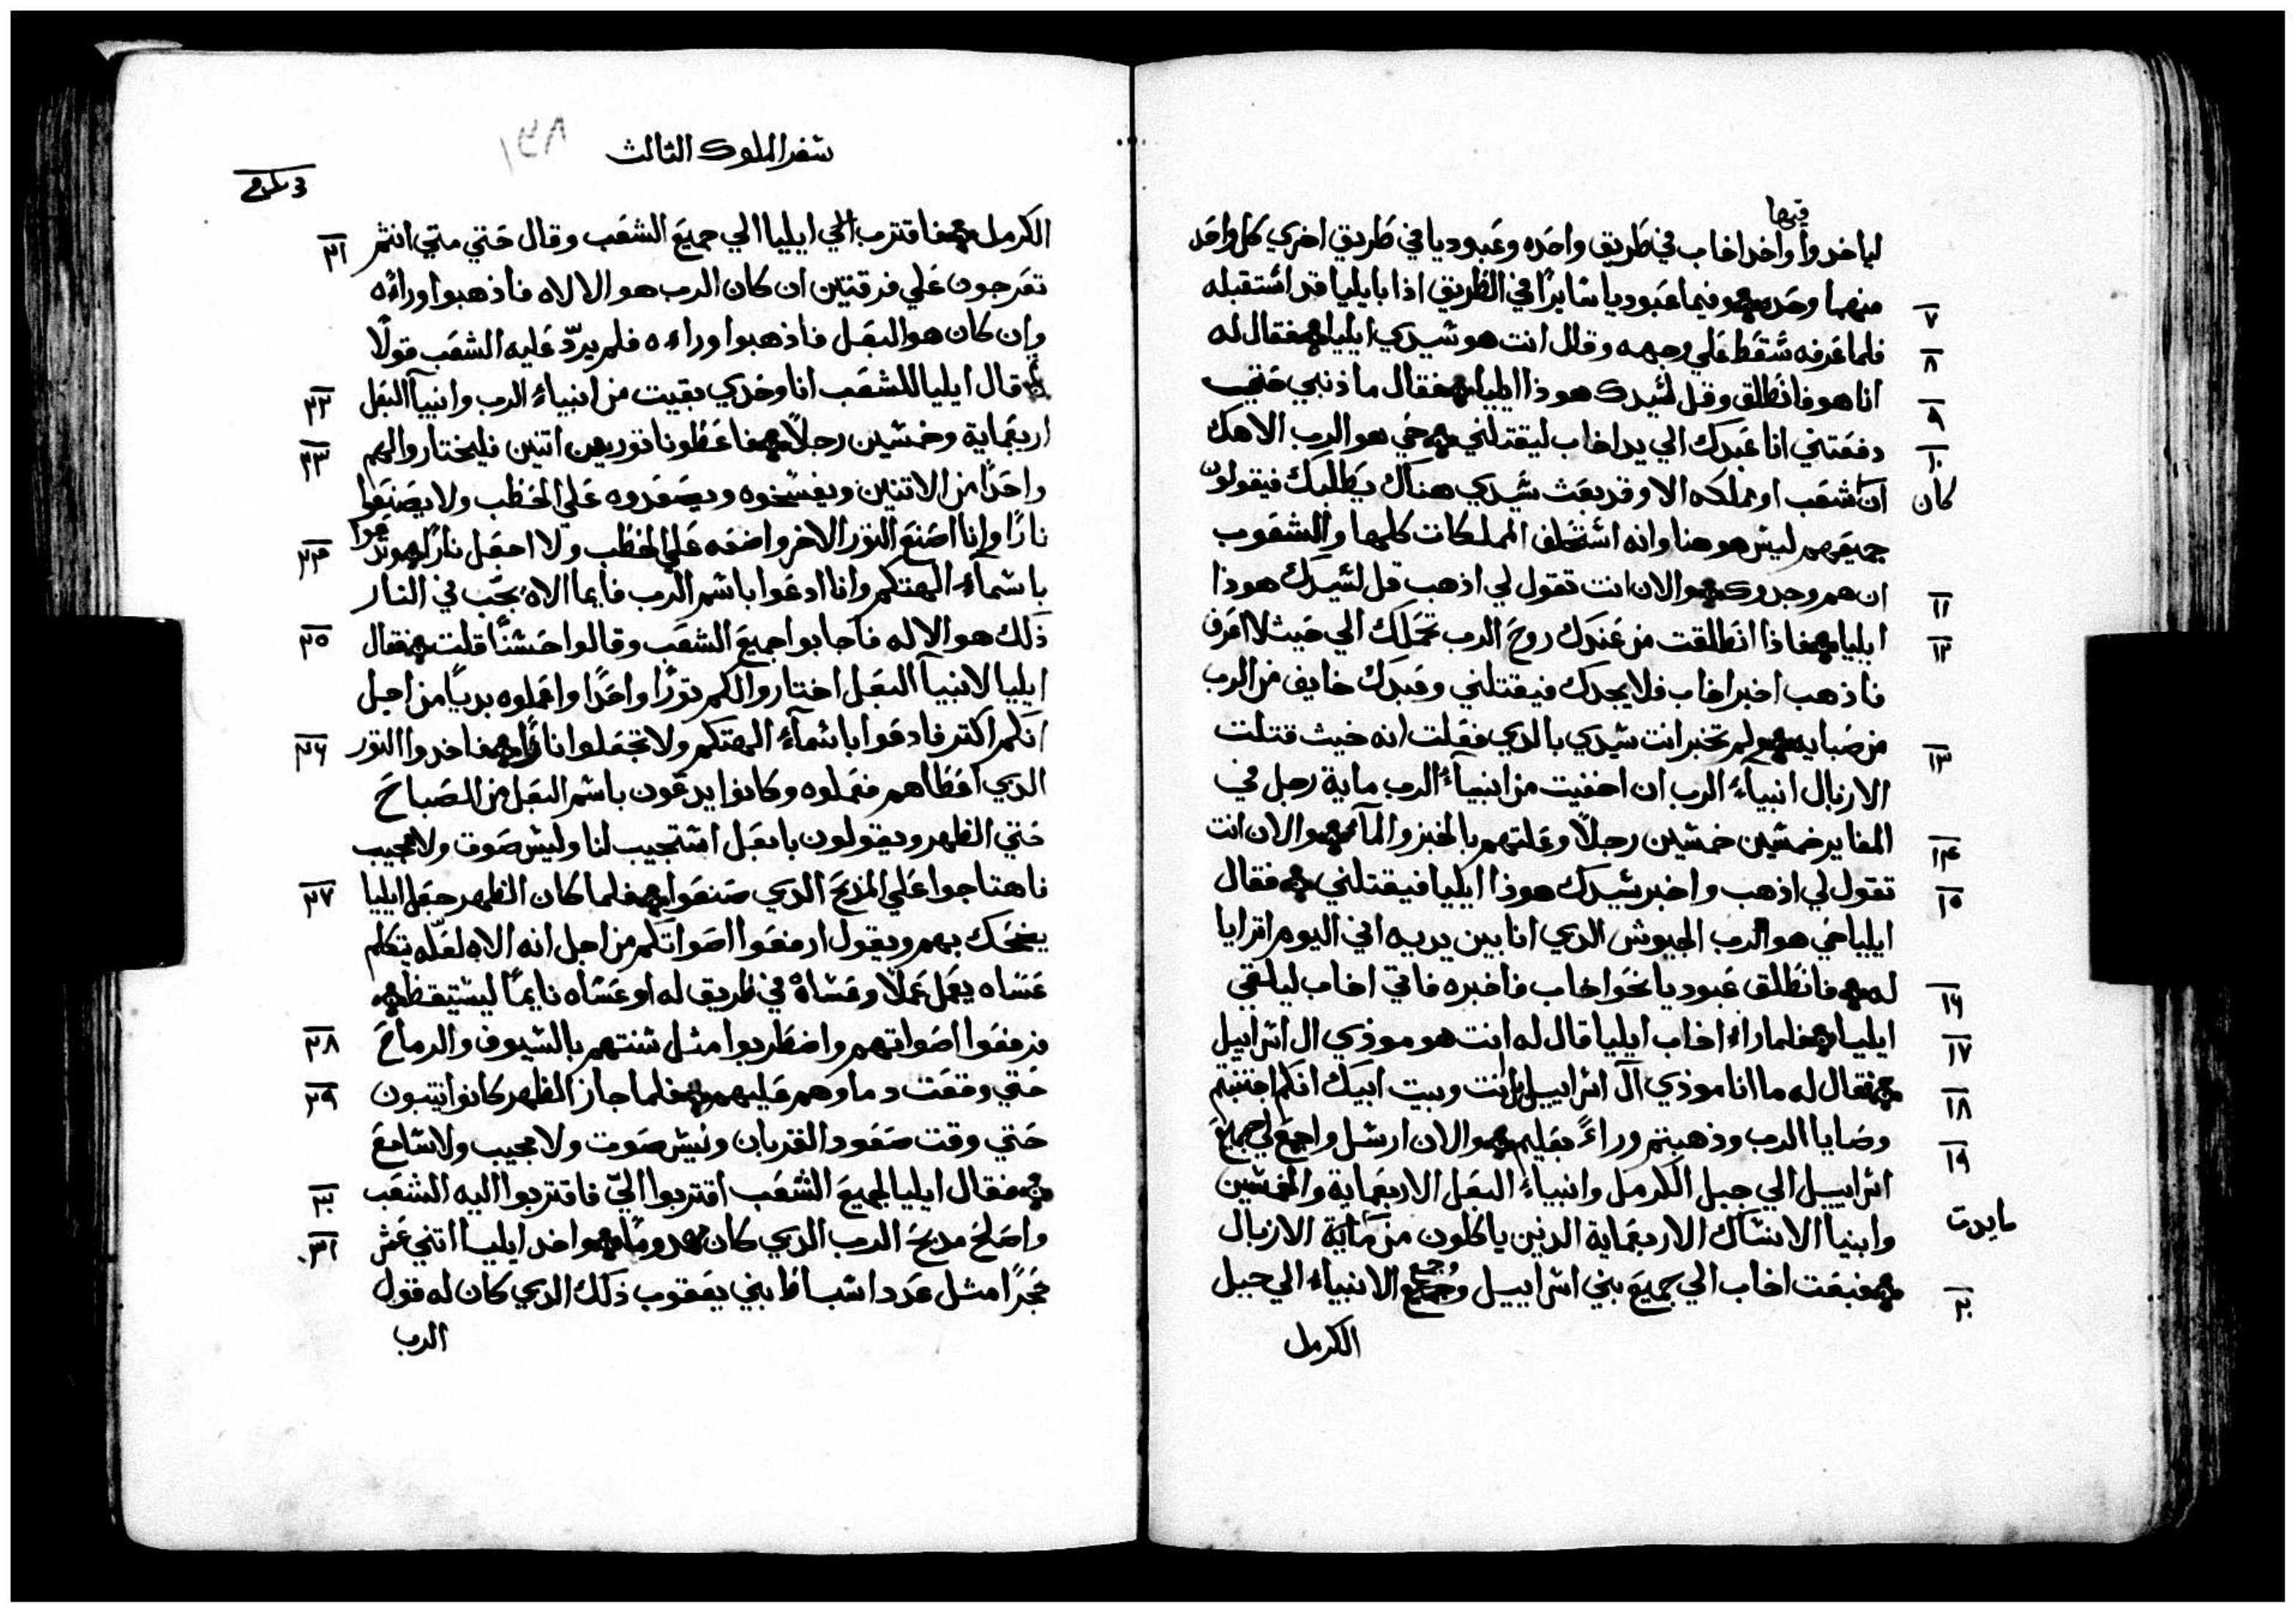 فيها
لياخدوا واخد اخاب في طريق واحده وعبوديا في طريق اخري كل واحد
٧ منهما وحده وفيما عبوديا سايرًا في الطريق اذا بايليا قد استقبله
٨ فلما عرفه سقط علي وجهه وقال انت هو سيدي ايليا فقال له
٩ انا هو فانطلق وقل لسيدك هوذا ايليا فقال ما ذنبي حتي
١٠ دفعتني انا عبدك الي يد اخاب ليقتلني حي هو الرب الاهك
كان ان شعب او مملكه الا وقد بعث سيدي هناك يطلبك فيقولون
جميعهم ليس هو هنا وانه استحلف المملكات كلها والشعوب
١١ ان هم وجدوك والان انت تقول لي اذهب قل لسيدك هوذا
١٢ ايليا فاذا انطلقت من عندك روح الرب تحملك الي حيث لا اعرف
فاذهب اخبر اخاب فلا يجدك فيقتلني وعبدك خايف من الرب
١٣ من صبايه ولم تخبر انت سيدي بالدي فعلت انه حيث قتلت
الازبال انبياء الرب ان اخفيت من انبياء الرب ماية رجل في
١٤ المغاير خمسين خمسين رجلًا وعلتهم بالخبز والماء والان انت
١٥ تقول لي اذهب واخبر سيدك هوذا ايليا فيقتلني فقال
ايليا حي هو الرب الجيوش الدي انا بين يديه اني اليوم اترايا
١٦ له فانطلق عبوديا نحو اخاب فاخبره فاقي اخاب ليلقي
١٧ ايليا فلما راء اخاب ايليا قال له انت هو موذي ال اسراييل
١٨ فقال له ما انا موذي ال اسراييل بل انت وبيت ابيك انكم اجتنبتم
١٩ وصايا الرب وذهبتم وراء بعليم والان ارسل واجمع لي جميع
اسراييل الي جبل الكرمل وانبياء البعل الاربعماية والخمسين
مايدت وانبيا الانساك الاربعماية الذين ياكلون من ماية الازبال
٢٠ فبعت اخاب الي جميع بني اسراييل وجمع جميع الانبياء الي جبل
الكرمل
سفر الملوك الثالث ١٣٨
٢١ الكرمل فاقترب الي ايليا الي جميع الشعب وقال حتي متي انتم
تعرجون علي فرقتين ان كان الرب هو الالاه فاذهبوا وراءه
وان كان هو البعل فاذهبوا وراءه فلم يردّ عليه الشعب قولًا
٢٢ قال ايليا للشعب انا وحدي بقيت من انبياء الرب وانبيآ البعل
٢٣ اربعماية وخمسين رجلًا فاعطونا تورين اتنين فليختاروا لهم
واحدًا من الاتنين ويفسخوه ويصعدوه علي الحطب ولا يصنعوا
٢٤ نارًا وانا اصنع التور الاخر واضعه علي الحطب ولا اجعل نارًا وتدعوا
باسمآء الهتكم وانا ادعوا باسم الرب فايما الاه يجب في النار
٢٥ ذلك هو الاله فاجابوا جميع الشعب وقالوا حسنًا قلت فقال
ايليا لانبيآ البعل اختاروا لكم تورًا واحدًا واعملوه بديًا من اجل
٢٦ انكم اكتر فادعوا باسمآء الهتكم ولا تجعلوا نارًا فاخدوا التور
الدي اعطاهم فعملوه وكانوا يدعون باسم البعل من الصباح
حتي الظهر ويقولون يا بعل استجيب لنا وليس صوت ولا مجيب
٢٧ فاهتاجوا علي المدبح الدي صنعوا فلما كان الظهر جعل ايليا
يضحك بهم ويقول ارفعوا اصواتكم من اجل انه الاه لعلّه يتكلم
عساه يعمل عملًا وعساهُ في طريق له او عساه نايمًا ليستيقظ
٢٨ فرفعوا اصواتهم واضطربوا مثل سنتهم بالسيوف والرماح
٢٩ حتي وقعت دماوهم عليهم فلما جاز الظهر كانوا يتنبون
حتي وقت صعود القربان وليس صوت ولا مجيب ولا سامع
٣٠ فقال ايليا لجميع الشعب اقتربوا اليّ فاقتربوا اليه الشعب
٣١ واصلح مدبح الرب الدي كان مهدومًا واخد ايليا اتني عشر
حجرًا مثل عدد اسباط بني يعقوب ذلك الدي كان له قول
الرب